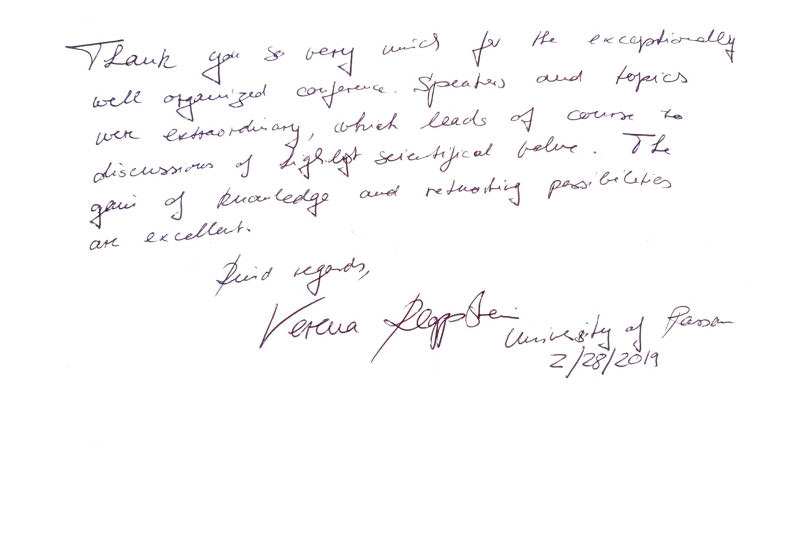 Thank you so very much for the exceptionally
well organized conference. Speakers and topics
were extraordinary, which leads of course to
discussions of highest scientifical value. The
gain of knowledge and networking possibilities
are excellent.
Kind regards,
Verena
University of Passau
2/28/2019